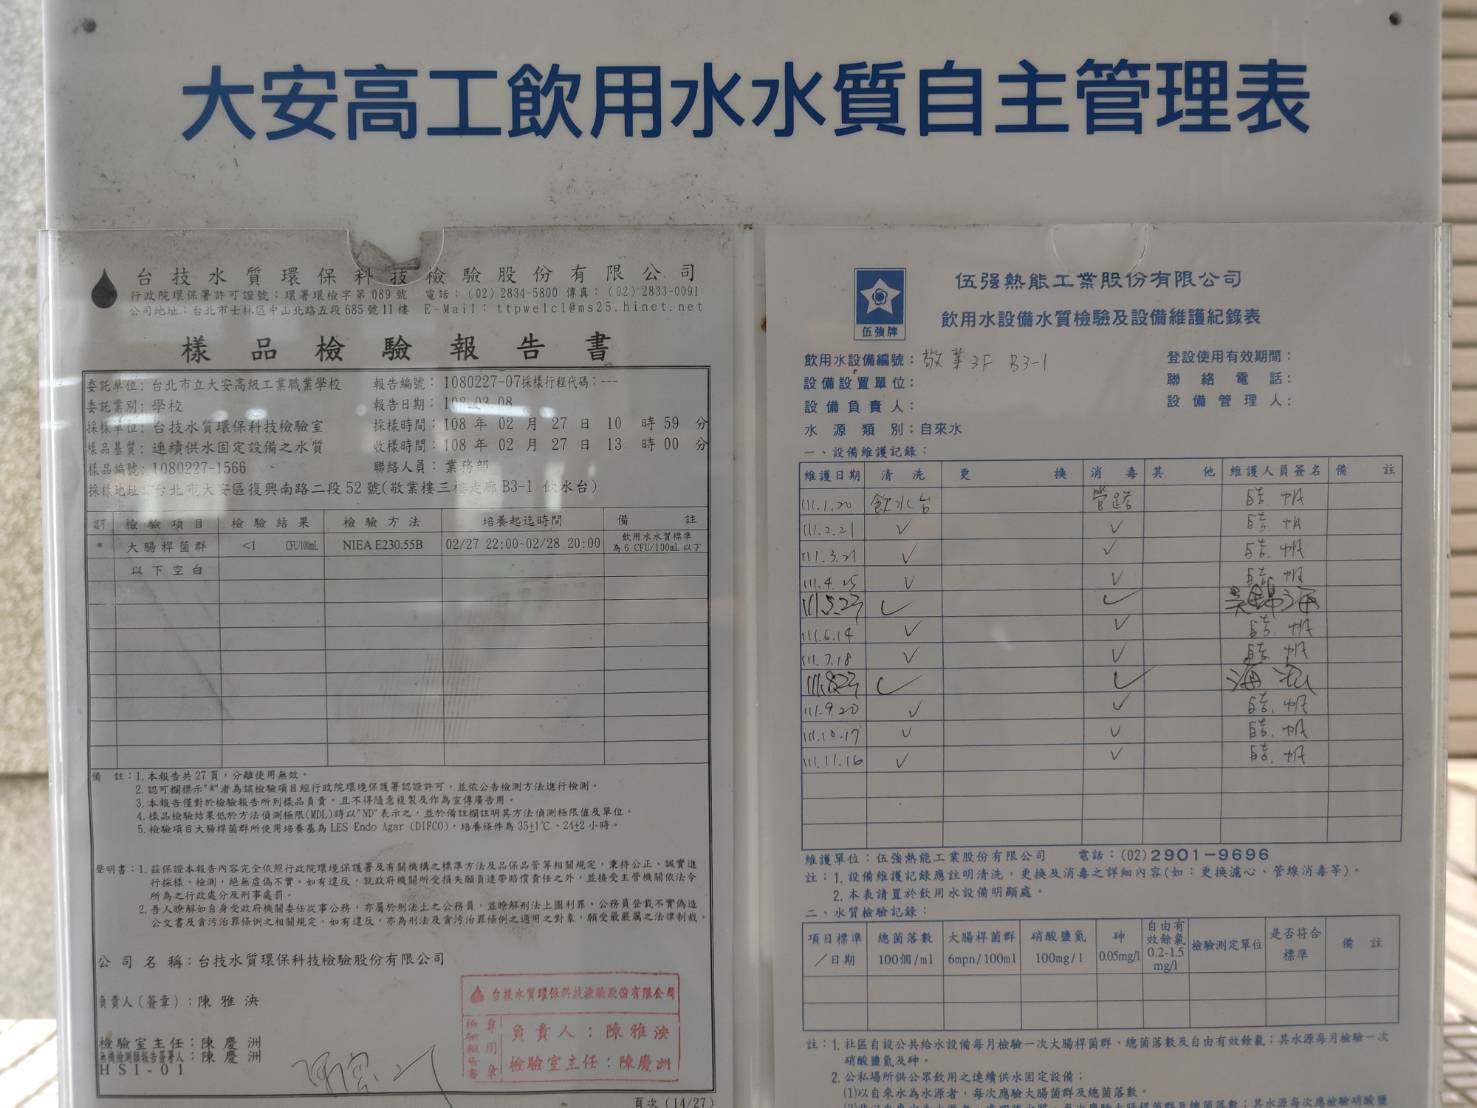 大安高工飲用水水質自主管理表
台技水質環保科技檢驗股份有限公司
行政院環保署許可證號：環署環檢字第089號 電話：(02) 2834-5800 傳真：(02) 2833-0091
公司地址：台北市士林區中山北路五段685號11樓 E-Mail：ttpwelcl@ms25.hinet.net
樣品檢驗報告書
委託單位：台北市立大安高級工業職業學校 報告編號：1080227-07採樣行程代碼：---
委託業別：學校 報告日期：108.03.08
採樣單位：台技水質環保科技檢驗室 採樣時間：108 年 02 月 27 日 10 時 59 分
樣品基質：連續供水固定設備之水質 收樣時間：108 年 02 月 27 日 13 時 00 分
樣品編號：1080227-1566 聯絡人員：業務部
採樣地址：台北市大安區復興南路二段52號(敬業樓三樓走廊B3-1 飲水台)
檢驗項目 檢驗結果 檢驗方法 培養起迄時間 備註
* 大腸桿菌群 <1 CFU/100mL NIEA E230.55B 02/27 22:00-02/28 20:00 飲用水水質標準為6 CFU/100mL以下
以下空白
備 註：1.本報告共27頁，分離使用無效。
2.認可欄標示"*"者為該檢驗項目經行政院環境保護署認證許可，並依公告檢測方法進行檢測。
3.本報告僅對於檢驗報告所列樣品負責，且不得隨意複製及作為宣傳廣告用。
4.樣品檢驗結果低於方法偵測極限(MDL)時以"ND"表示之，並於備註欄註明其方法偵測極限值及單位。
5.檢驗項目大腸桿菌群所使用培養基為 LES Endo Agar (DIFCO)，培養條件為35±1℃、24±2小時。
聲明書：1.茲保證本報告內容完全依照行政院環境保護署及有關機構之標準方法及品保品管等相關規定，秉持公正、誠實進
行採樣、檢測，絕無虛偽不實。如有違反，就政府機關所受損失願負連帶賠償責任之外，並接受主管機關依法令
所為之行政處分及刑事處罰。
2.吾人瞭解如自身受政府機關委任從事公務，亦屬於刑法上之公務員，並瞭解刑法上圖利罪、公務員登載不實偽造
公文書及貪污治罪條例之相關規定，如有違反，亦為刑法及貪污治罪條例之適用之對象，願受最嚴厲之法律制裁。
公司名稱：台技水質環保科技檢驗股份有限公司
負責人(簽章)：陳雅泱
檢驗室主任：陳慶洲
無機檢測類報告簽署人：陳慶洲
HSI-01
台技水質環保科技檢驗股份有限公司
檢驗報告書
專用章
負責人：陳雅泱
檢驗室主任：陳慶洲
頁次 (14/27)
伍強牌
伍强熱能工業股份有限公司
飲用水設備水質檢驗及設備維護紀錄表
飲用水設備編號：敬業3F B3-1 登設使用有效期間：
設備設置單位： 聯絡電話：
設備負責人： 設備管理人：
水源類別：自來水
一、設備維護記錄：
維護日期 清洗 更換 消毒 其他 維護人員簽名 備註
111.1.20 飲水台 管路
111.2.21 ✓ ✓
111.3.21 ✓ ✓
111.4.25 ✓ ✓
111.5.23 ✓ ✓
111.6.14 ✓ ✓
111.7.18 ✓ ✓
111.8.23 ✓ ✓
111.9.20 ✓ ✓
111.10.17 ✓ ✓
111.11.16 ✓ ✓
維護單位：伍強熱能工業股份有限公司 電話：(02)2901-9696
註：1.設備維護記錄應註明清洗，更換及消毒之詳細內容(如：更換濾心、管線消毒等)。
2.本表請置於飲用水設備明顯處。
二、水質檢驗記錄：
項目標準／日期 總菌落數 100個/ml 大腸桿菌群 6mpn/100ml 硝酸鹽氮 100mg/l 砷 0.05mg/l 自由有效餘氯 0.2-1.5 mg/l 檢驗測定單位 是否符合標準 備註
註：1.社區自設公共給水設備每月檢驗一次大腸桿菌群、總菌落數及自由有效餘氯；其水源每月檢驗一次
硝酸鹽氮及砷。
2.公私場所供公眾飲用之連續供水固定設備：
(1)以自來水為水源者，每次應驗大腸菌群及總菌落數。